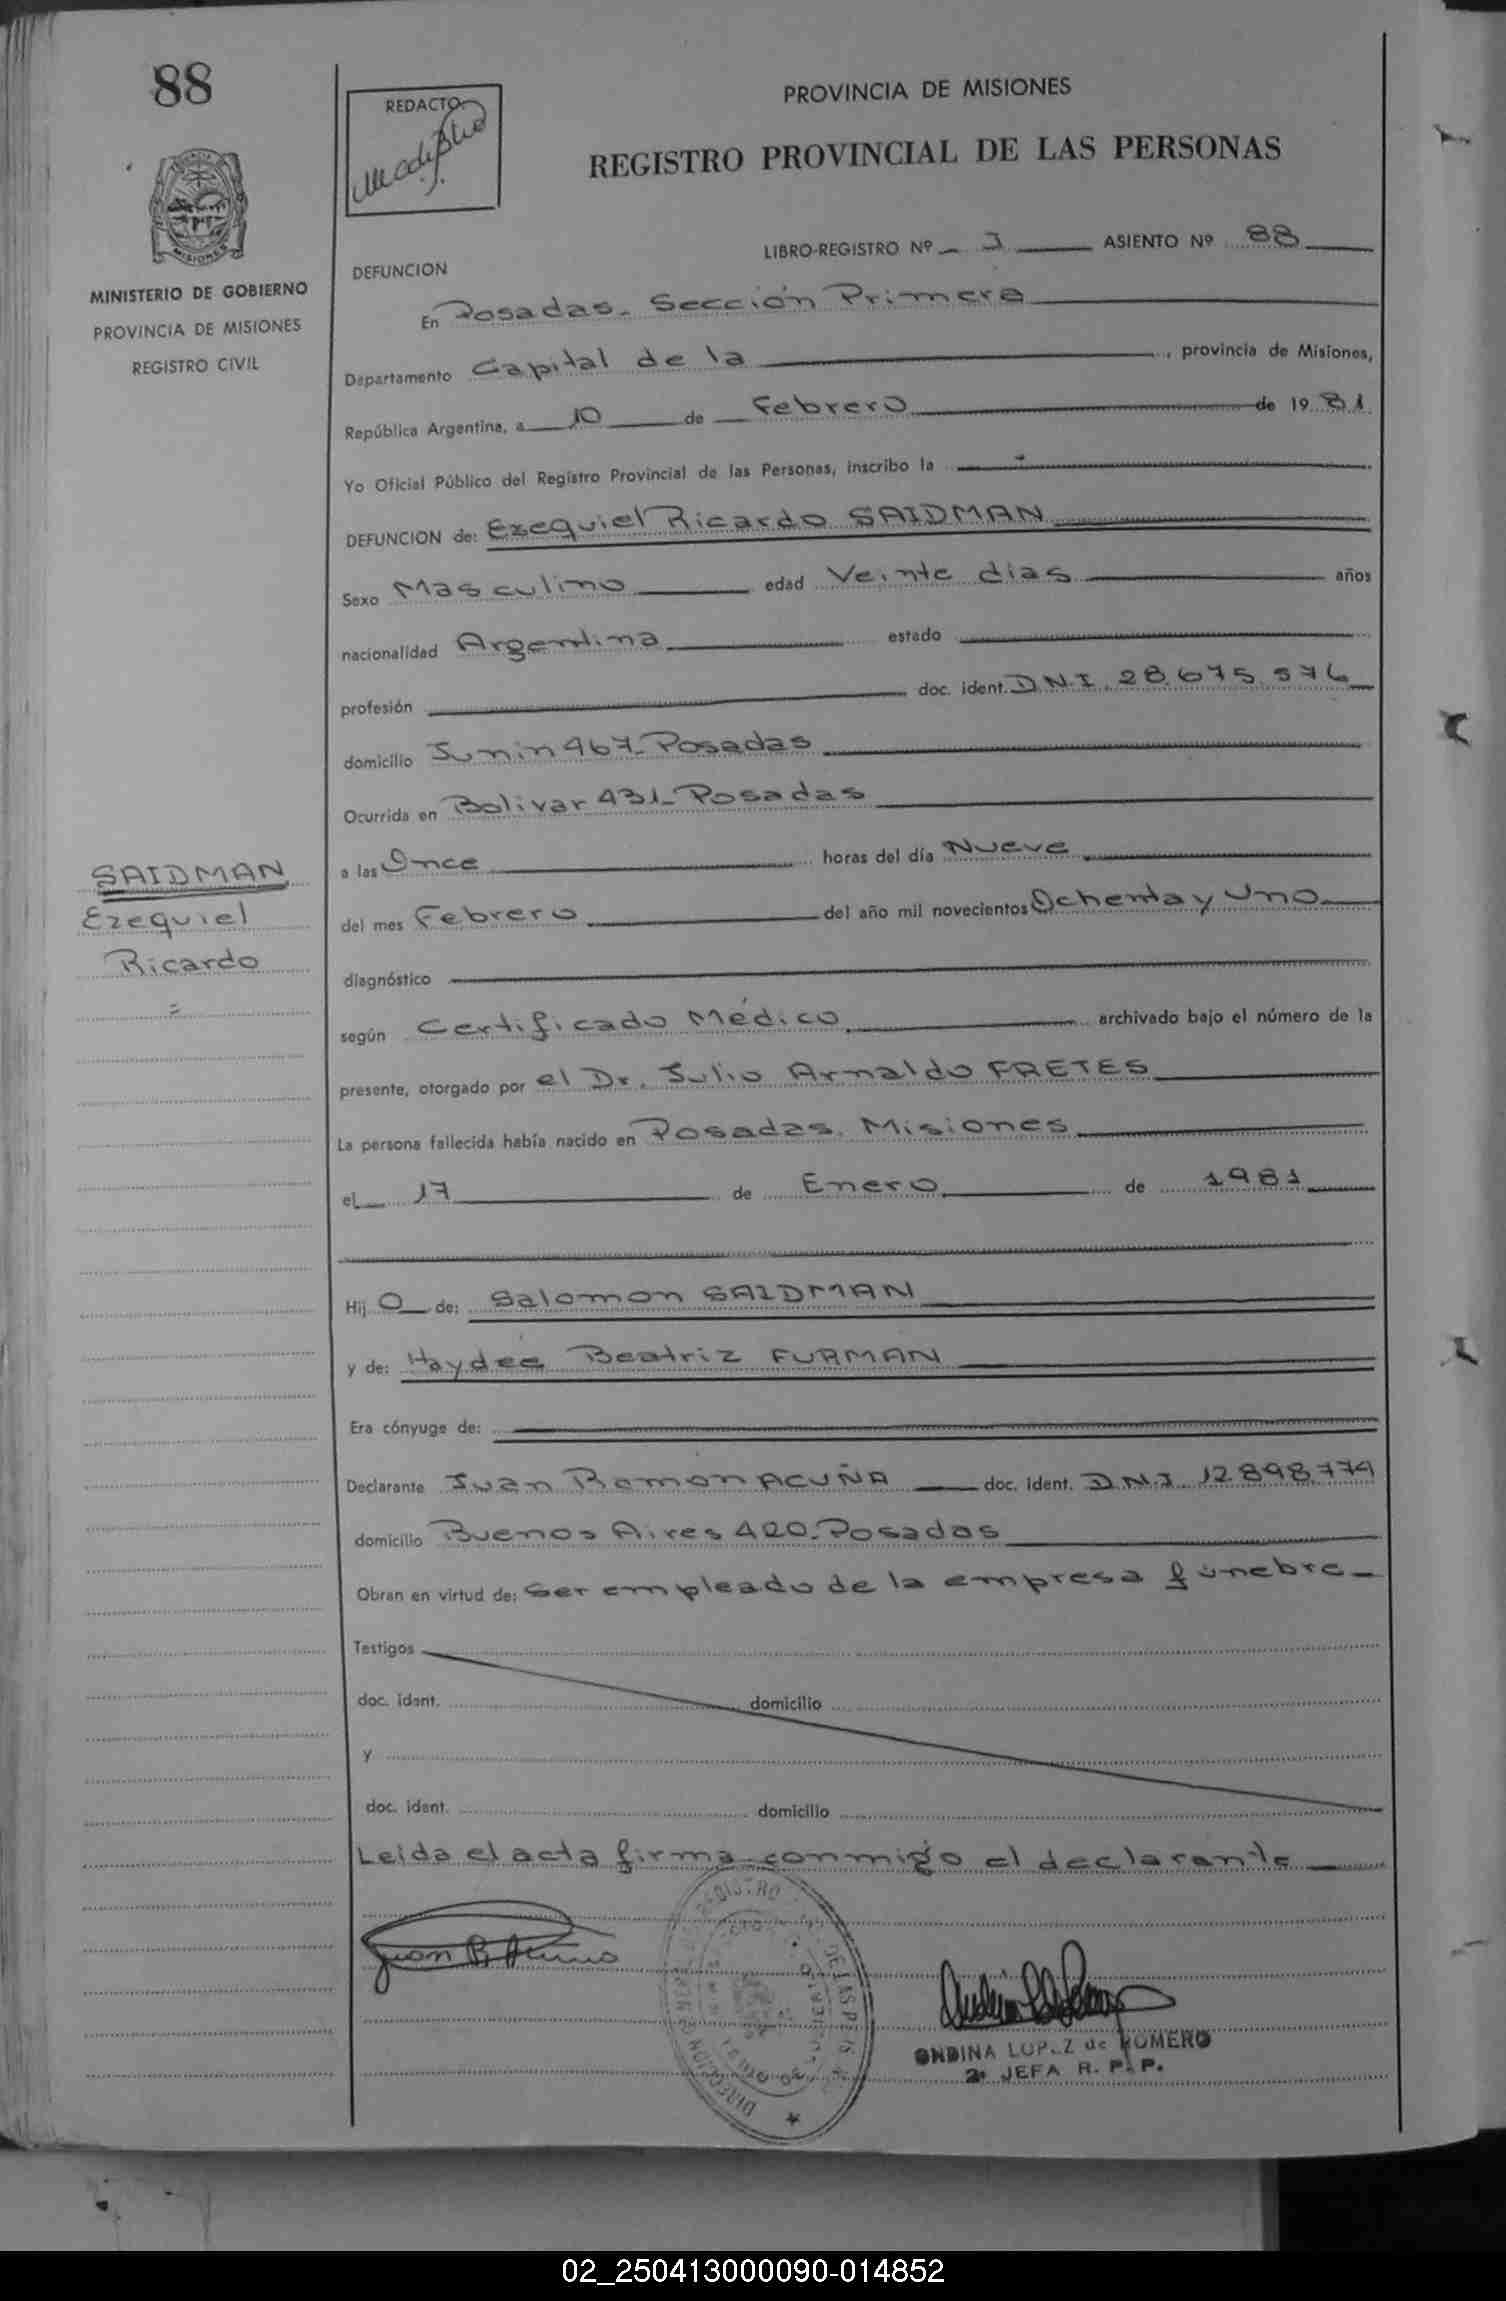 88
REDACTO
PROVINCIA DE MISIONES
REGISTRO PROVINCIAL DE LAS PERSONAS
MISIONES
MINISTERIO DE GOBIERNO
PROVINCIA DE MISIONES
REGISTRO CIVIL
LIBRO-REGISTRO Nº 3 ASIENTO Nº 88
DEFUNCION
En Posadas. Sección Primera
Departamento Capital de la, provincia de Misiones,
República Argentina, a 10 de Febrero de 1981
Yo Oficial Público del Registro Provincial de las Personas, inscribo la
DEFUNCION de: Ezequiel Ricardo SAIDMAN
Sexo Masculino edad Veinte dias años
nacionalidad Argentina estado
profesión doc. ident. D.N.I. 28.675.576
domicilio Junin 967-Posadas
Ocurrida en Bolivar 431-Posadas
a las Once horas del día Nueve
del mes Febrero del año mil novecientos Ochenta y Uno
SAIDMAN
Ezequiel
Ricardo
=
diagnóstico
según Certificado Médico archivado bajo el número de la
presente, otorgado por el Dr. Julio Arnaldo FRETES
La persona fallecida había nacido en Posadas. Misiones
el 17 de Enero de 1981
Hij O de: Salomon SAIDMAN
y de: Haydee Beatriz FURMAN
Era cónyuge de:
Declarante Juan Ramon ACUÑA doc. ident. D.N.I. 12.898.779
domicilio Buenos Aires 420-Posadas
Obran en virtud de: Ser empleado de la empresa fúnebre
Testigos
doc. ident. domicilio
y
doc. ident. domicilio
Leida el acta firma conmigo el declarante
Juan R. Acuña
ONDINA LOPEZ de ROMERO
2º JEFA R. P. P.
02_250413000090-014852